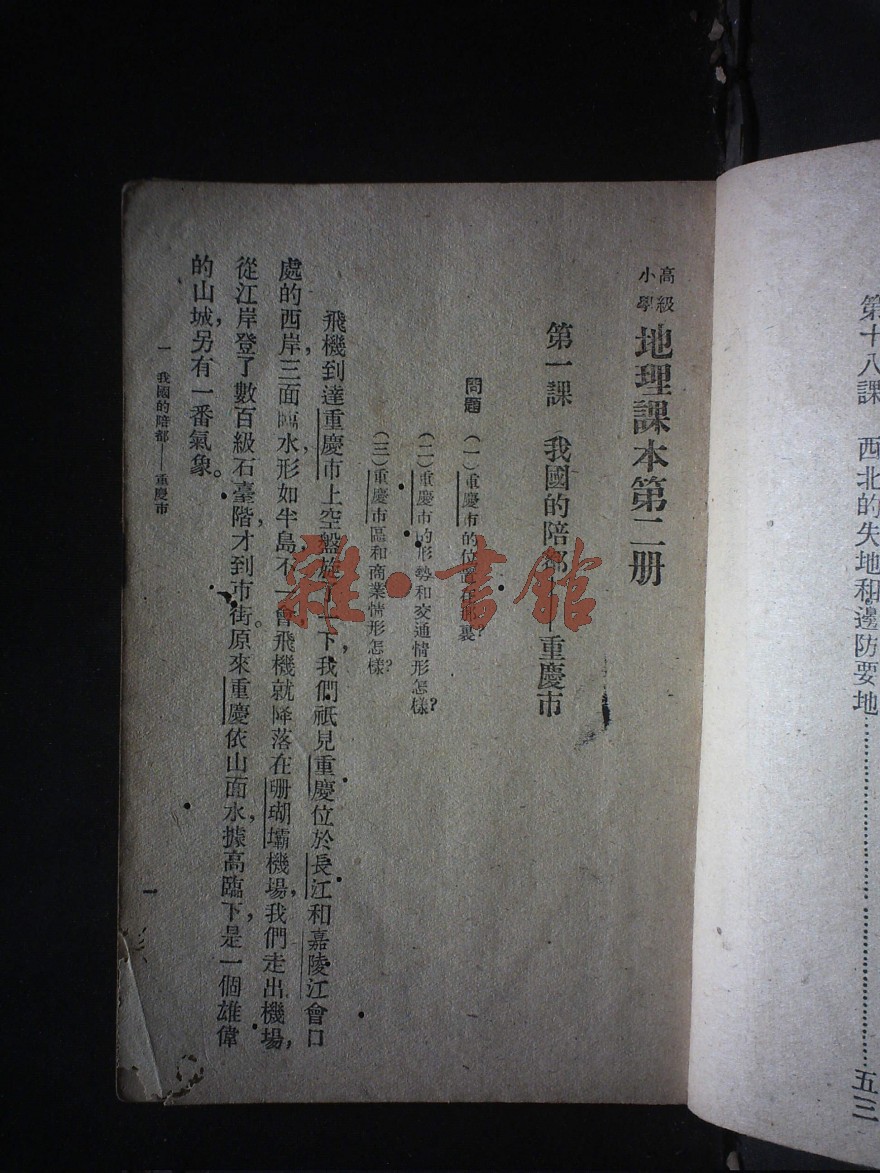 第十八課　西北的失地和邊防要地……………………五三
高級小學
地理課本第二册
第一課　我國的陪都——重慶市
問題　(一)重慶市的位置在那裏?
(二)重慶市的形勢和交通情形怎樣?
(三)重慶市區和商業情形怎樣?
飛機到達重慶市上空盤旋了一下,我們祇見重慶位於長江和嘉陵江會口
處的西岸,三面臨水,形如半島。不一會,飛機就降落在珊瑚壩機場,我們走出機場,
從江岸登了數百級石臺階,才到市街。原來重慶依山面水,據高臨下,是一個雄偉
的山城,另有一番氣象。
一　我國的陪都——重慶市
一
雜·書館